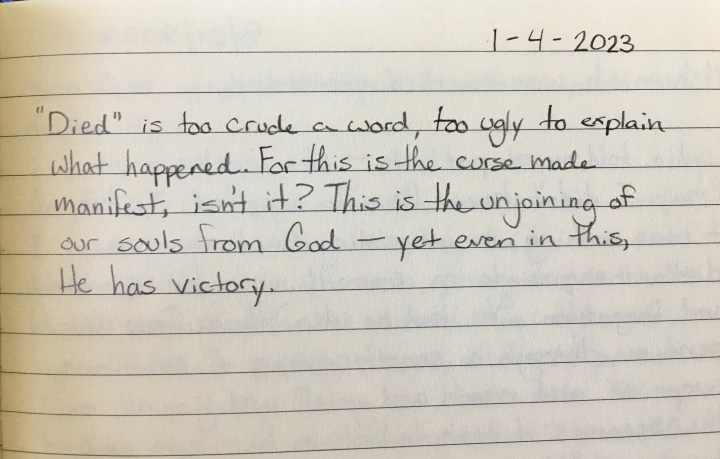 1-4-2023
"Died" is too crude a word, too ugly to explain
what happened. For this is the curse made
manifest, isn't it? This is the unjoining of
our souls from God — yet even in this,
He has victory.